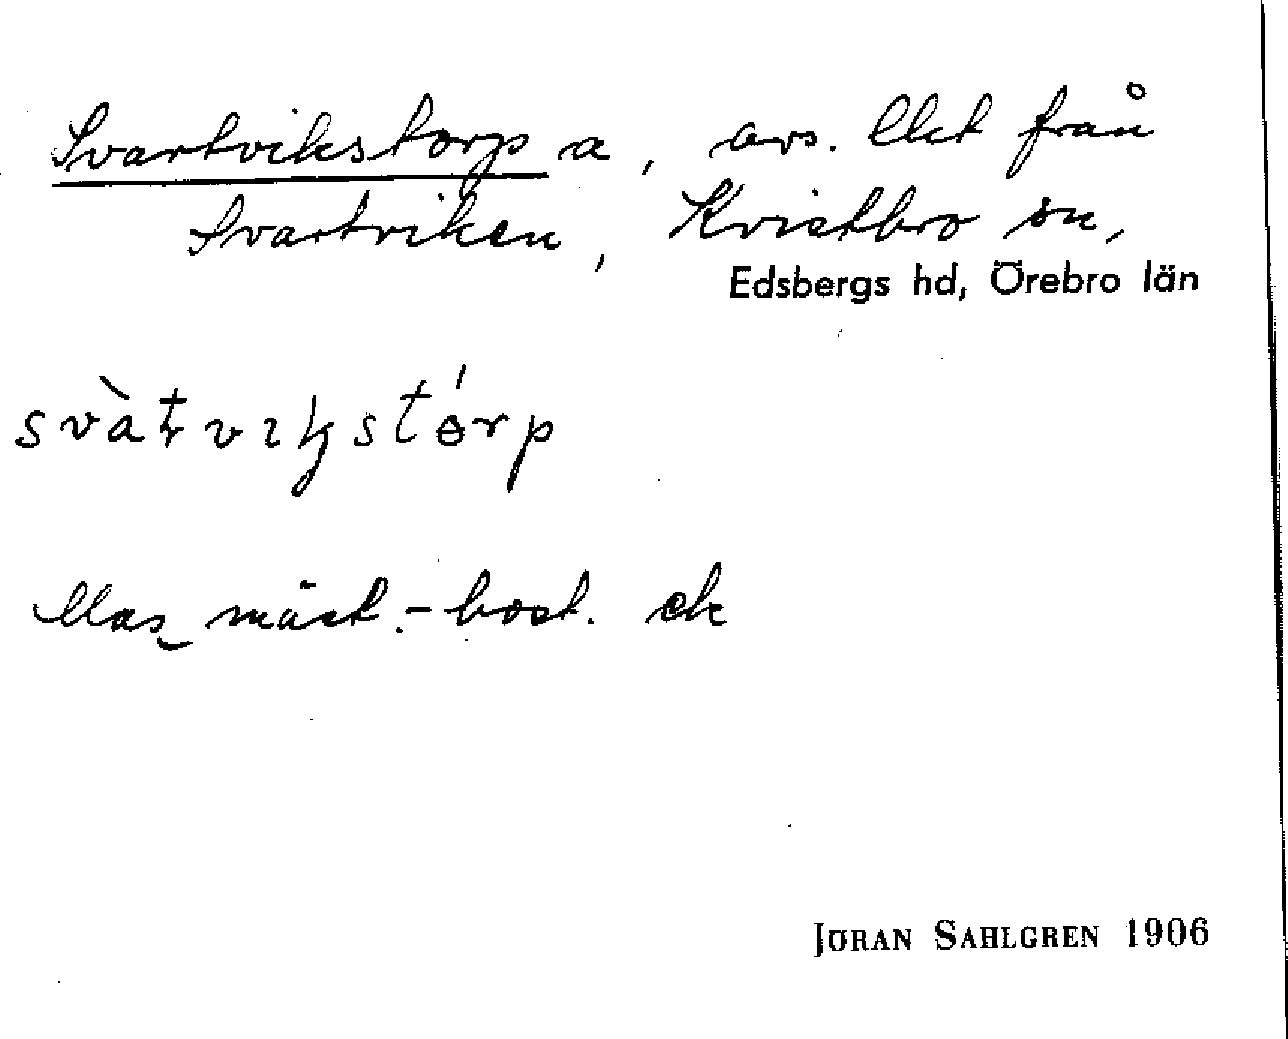 Svartvikstorp a, avs. lht från
Svartviken, Kvistbro sn,
Edsbergs hd, Örebro län
svàtvikstórp
mäst.-bost.
JÖRAN SAHLGREN 1906